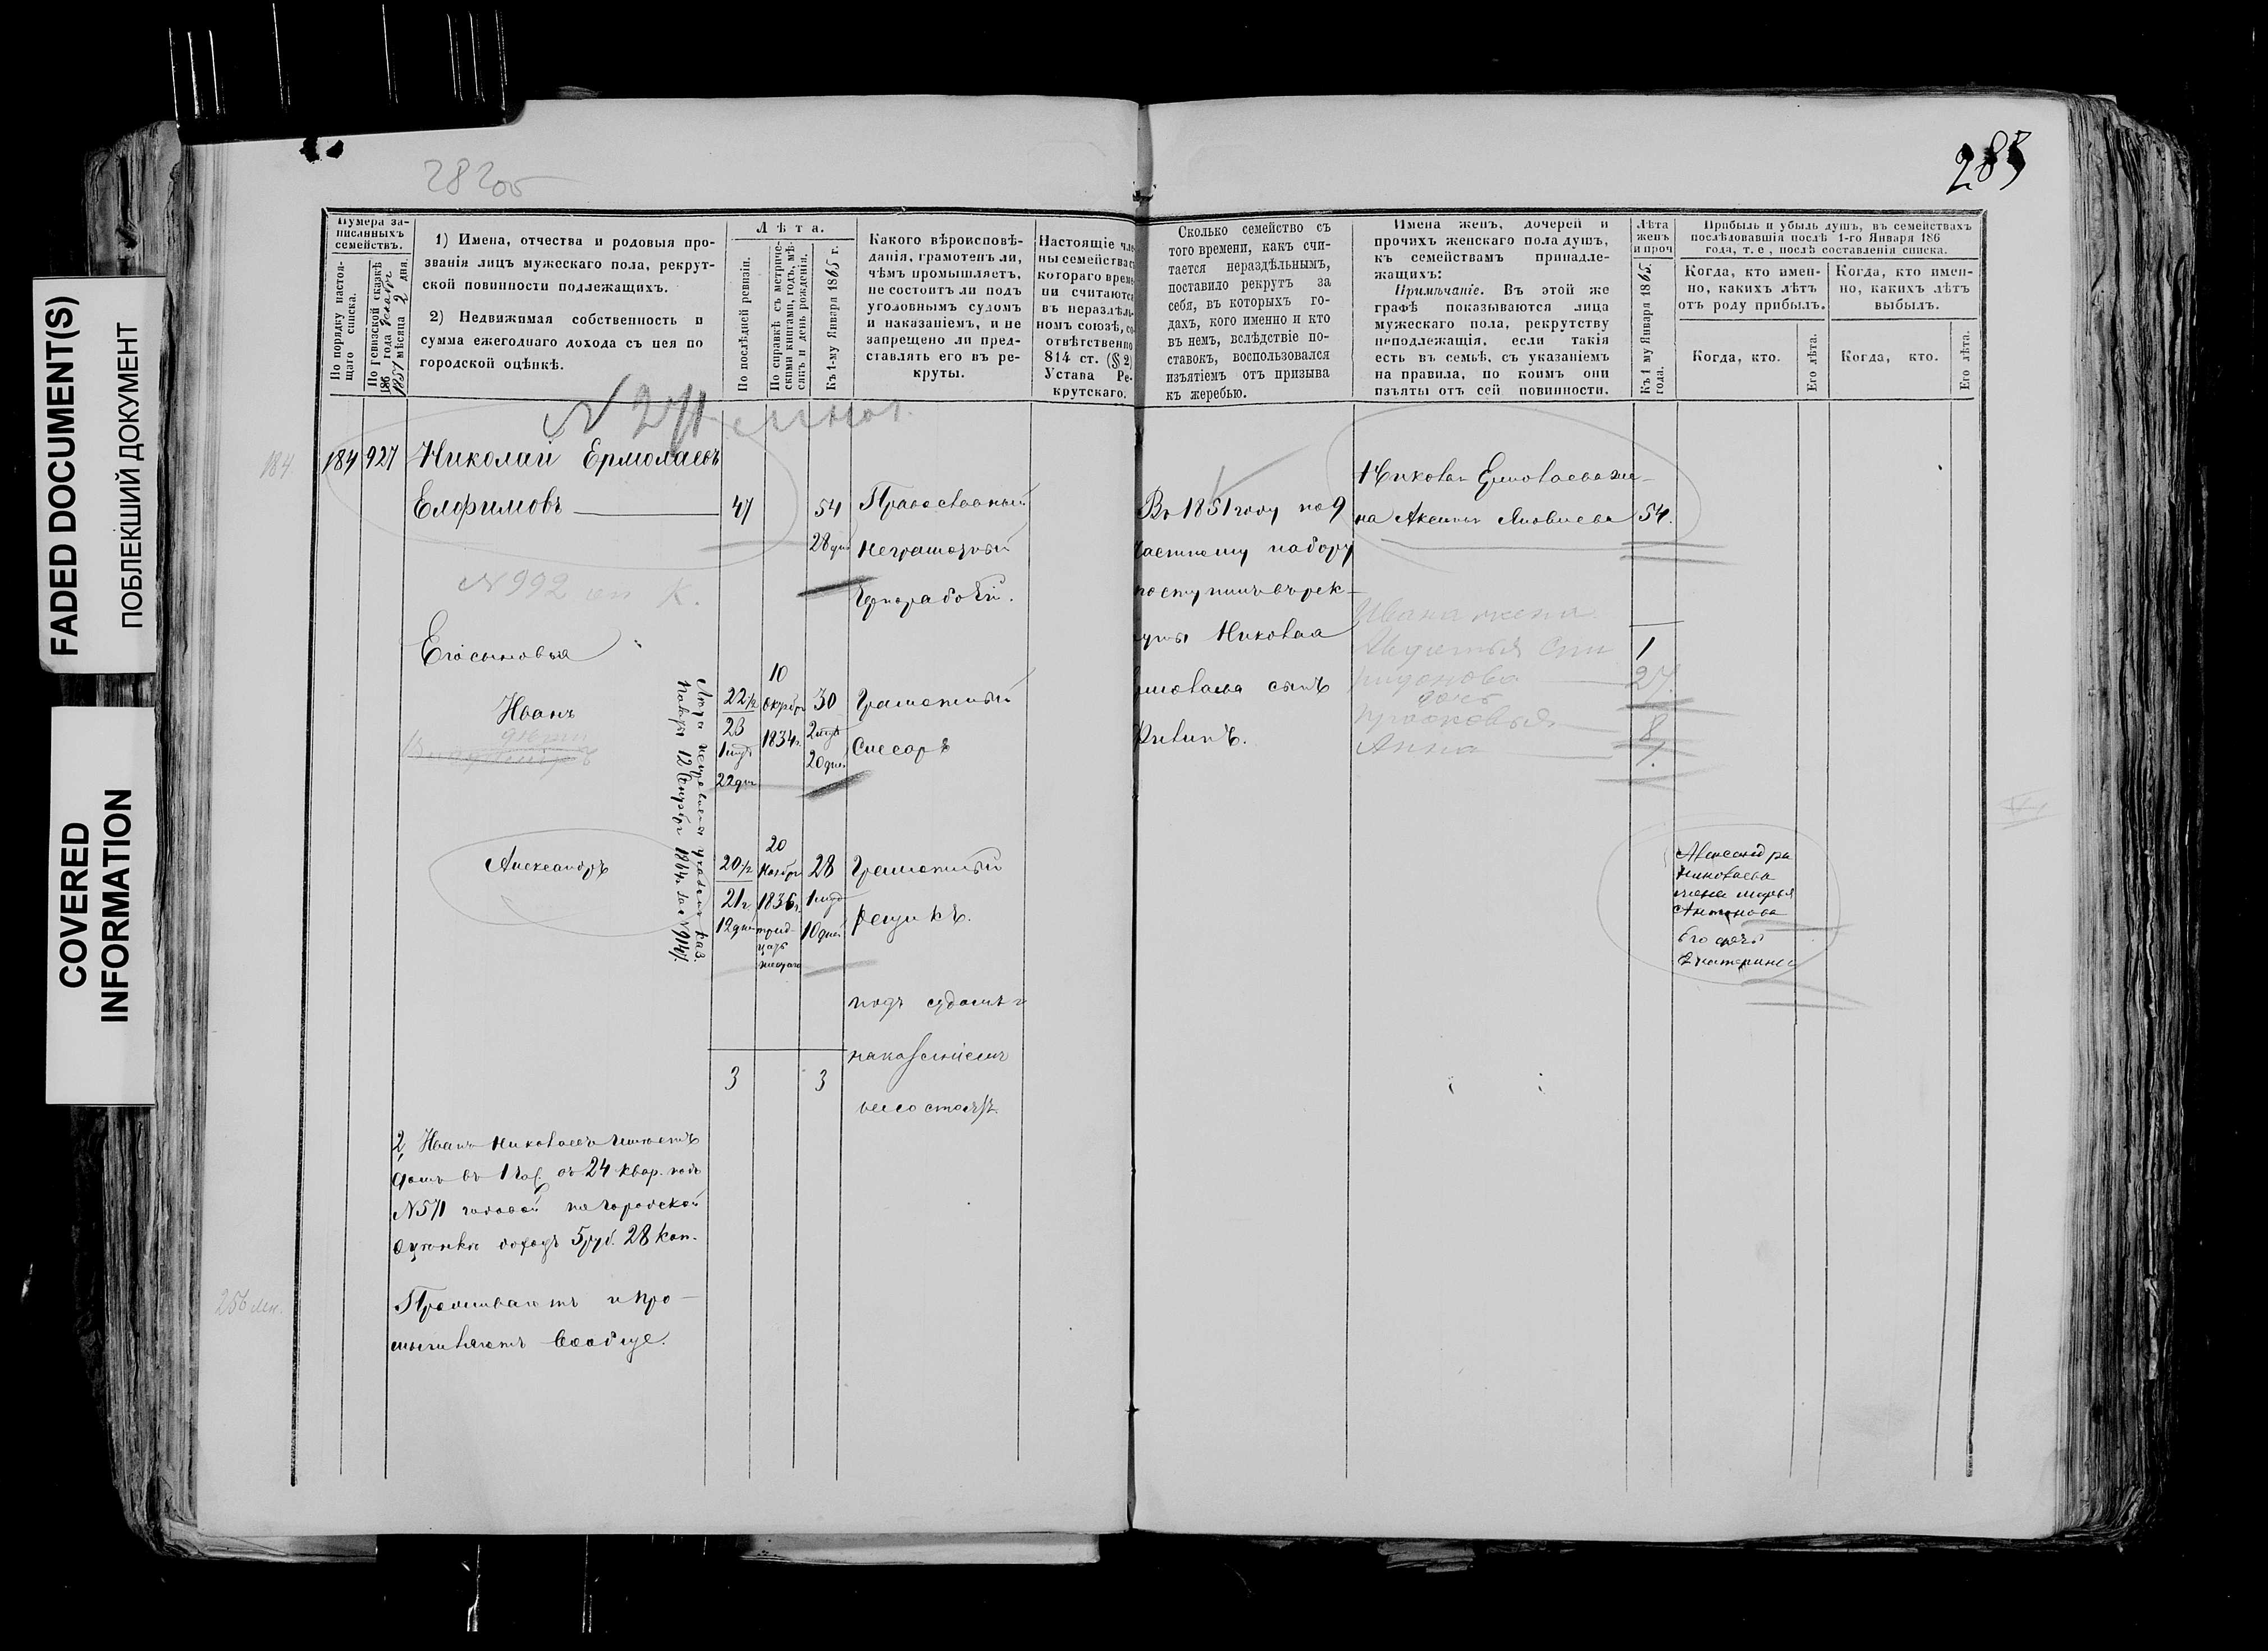 FADED DOCUMENT(S)
ПОБЛЕКШИЙ ДОКУМЕНТ
COVERED
INFORMATION
282об
285
Нумера за-
писанныхъ
семействъ.
По порядку настоя-
щаго списка.
По ревизской сказкѣ
186 года декабря
1857 мѣсяца 2 дня.
1) Имена, отчества и родовыя про-
званія лицъ мужескаго пола, рекрут-
ской повинности подлежащихъ.
2) Недвижимая собственность и
сумма ежегоднаго дохода съ нея по
городской оцѣнкѣ.
Лѣта.
По послѣдней ревизіи.
По справкѣ съ метриче-
скими книгами, годъ, мѣ-
сяцъ и день рожденія.
Къ 1-му Января 1865 г.
Какого вѣроисповѣ-
данія, грамотенъ ли,
чѣмъ промышляетъ,
не состоитъ ли подъ
уголовнымъ судомъ
и наказаніемъ, и не
запрещено ли пред-
ставлять его въ ре-
круты.
Настоящіе чле
ны семейства съ
котораго врем
ни считаются
въ нераздѣль
номъ союзѣ, со
отвѣтственно
814 ст. (§ 2)
Устава Ре-
крутскаго.
Сколько семейство съ
того времени, какъ счи-
тается нераздѣльнымъ,
поставило рекрутъ за
себя, въ которыхъ го-
дахъ, кого именно и кто
въ немъ, вслѣдствіе по-
ставокъ, воспользовался
изъятіемъ отъ призыва
къ жеребью.
Имена женъ, дочерей и
прочихъ женскаго пола душъ,
къ семействамъ принадле-
жащихъ:
Примѣчаніе. Въ этой же
графѣ показываются лица
мужескаго пола, рекрутству
неподлежащія, если такія
есть въ семьѣ, съ указаніемъ
на правила, по коимъ они
изъяты отъ сей повинности.
Лѣта
женъ
и проч
Къ 1 му Января 1865.
года.
Прибыль и убыль душъ, въ семействахъ
послѣдовавшія послѣ 1-го Января 186
года, т. е , послѣ составленія списка.
Когда, кто имен-
но, какихъ лѣтъ
отъ роду прибылъ.
Когда, кто имен-
но, какихъ лѣтъ
выбылъ.
Когда, кто.
Его лѣта.
Когда, кто.
Его лѣта.
N 271
184
184 927 Николай Ермолаевъ
Елфимовъ 47 54 Православный
28 дн неграмотный
Чернорабочій.
N 992
Его сыновья
Иванъ
22½ 23 1 мѣс 22 дн
10 Октября 1834 г.
30 2 мѣс 20 дне.
Грамотный
Слесарь
Александръ
20½ 21 г. 12 дней
20 Ноября 1836 г. трид-
цать
шестаго
28 1 мѣс 10 дней
Грамотный
рещикъ.
подъ судомъ и
наказаніемъ
не состоятъ.
3 3
2, Иванъ Николаевъ имѣетъ
домъ въ 1 час. въ 24 квар. подъ
N 571 годовой по городской
оцѣнкѣ доходъ 5 руб. 28 коп.
Проживаютъ и про-
мышляютъ вообще.
Въ 1851 году по 9
частному набору
поступилъ въ рек-
руты Николая
Ермолаева сынъ
Филипъ.
Николая Ермолаева же-
на Аксинья Яковлева 54.
Ивана жена
Авдотья Спи
ридонова 27.
дочь
Прасковья 8
Анна 1.
Александра
Николаева
жена Марья
Антонова
Его дочь
Екатерина